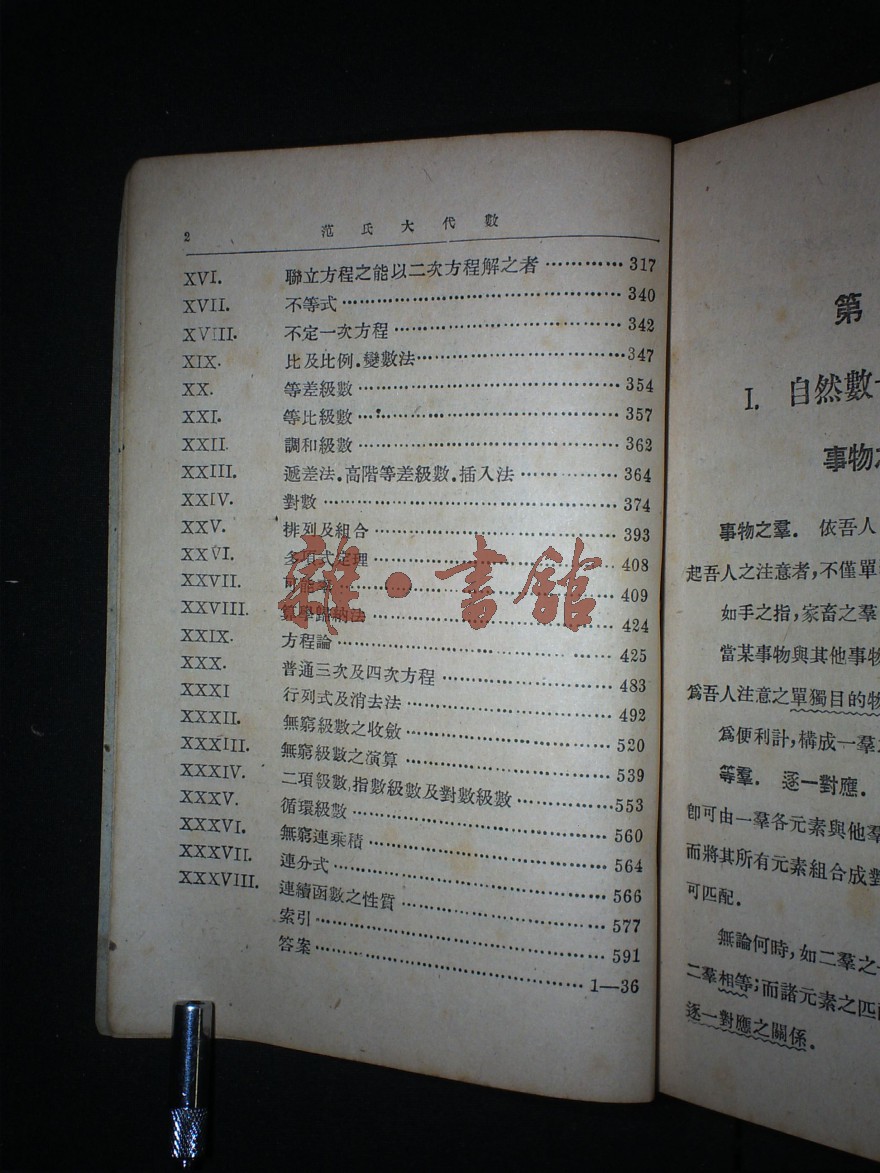 2 范氏大代數
XVI. 聯立方程之能以二次方程解之者 ………… 317
XVII. 不等式 ………… 340
XVIII. 不定一次方程 ………… 342
XIX. 比及比例.變數法 ………… 347
XX. 等差級數 ………… 354
XXI. 等比級數 ………… 357
XXII. 調和級數 ………… 362
XXIII. 遞差法.高階等差級數.插入法 ………… 364
XXIV. 對數 ………… 374
XXV. 排列及組合 ………… 393
XXVI. 多項式定理 ………… 408
XXVII. 可能率 ………… 409
XXVIII. 算學歸納法 ………… 424
XXIX. 方程論 ………… 425
XXX. 普通三次及四次方程 ………… 483
XXXI 行列式及消去法 ………… 492
XXXII. 無窮級數之收斂 ………… 520
XXXIII. 無窮級數之演算 ………… 539
XXXIV. 二項級數,指數級數及對數級數 ………… 553
XXXV. 循環級數 ………… 560
XXXVI. 無窮連乘積 ………… 564
XXXVII. 連分式 ………… 566
XXXVIII. 連續函數之性質 ………… 577
索引 ………… 591
答案 ………… 1—36
雜·書館
第
I. 自然數
事物
事物之羣. 依吾人
起吾人之注意者,不僅單
如手之指,家畜之羣
當某事物與其他事物
爲吾人注意之單獨目的物
爲便利計,構成一羣
等羣. 逐一對應.
卽可由一羣各元素與他羣
而將其所有元素組合成對
可匹配.
無論何時,如二羣之
二羣相等;而諸元素之匹
逐一對應之關係.